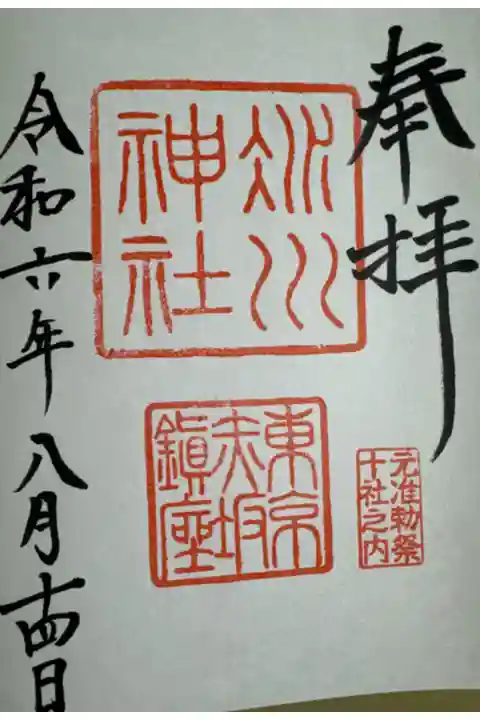 奉拝
元准勅祭
十社之内
氷川
神社
東京
赤坂
鎮座
令和六年八月十四日